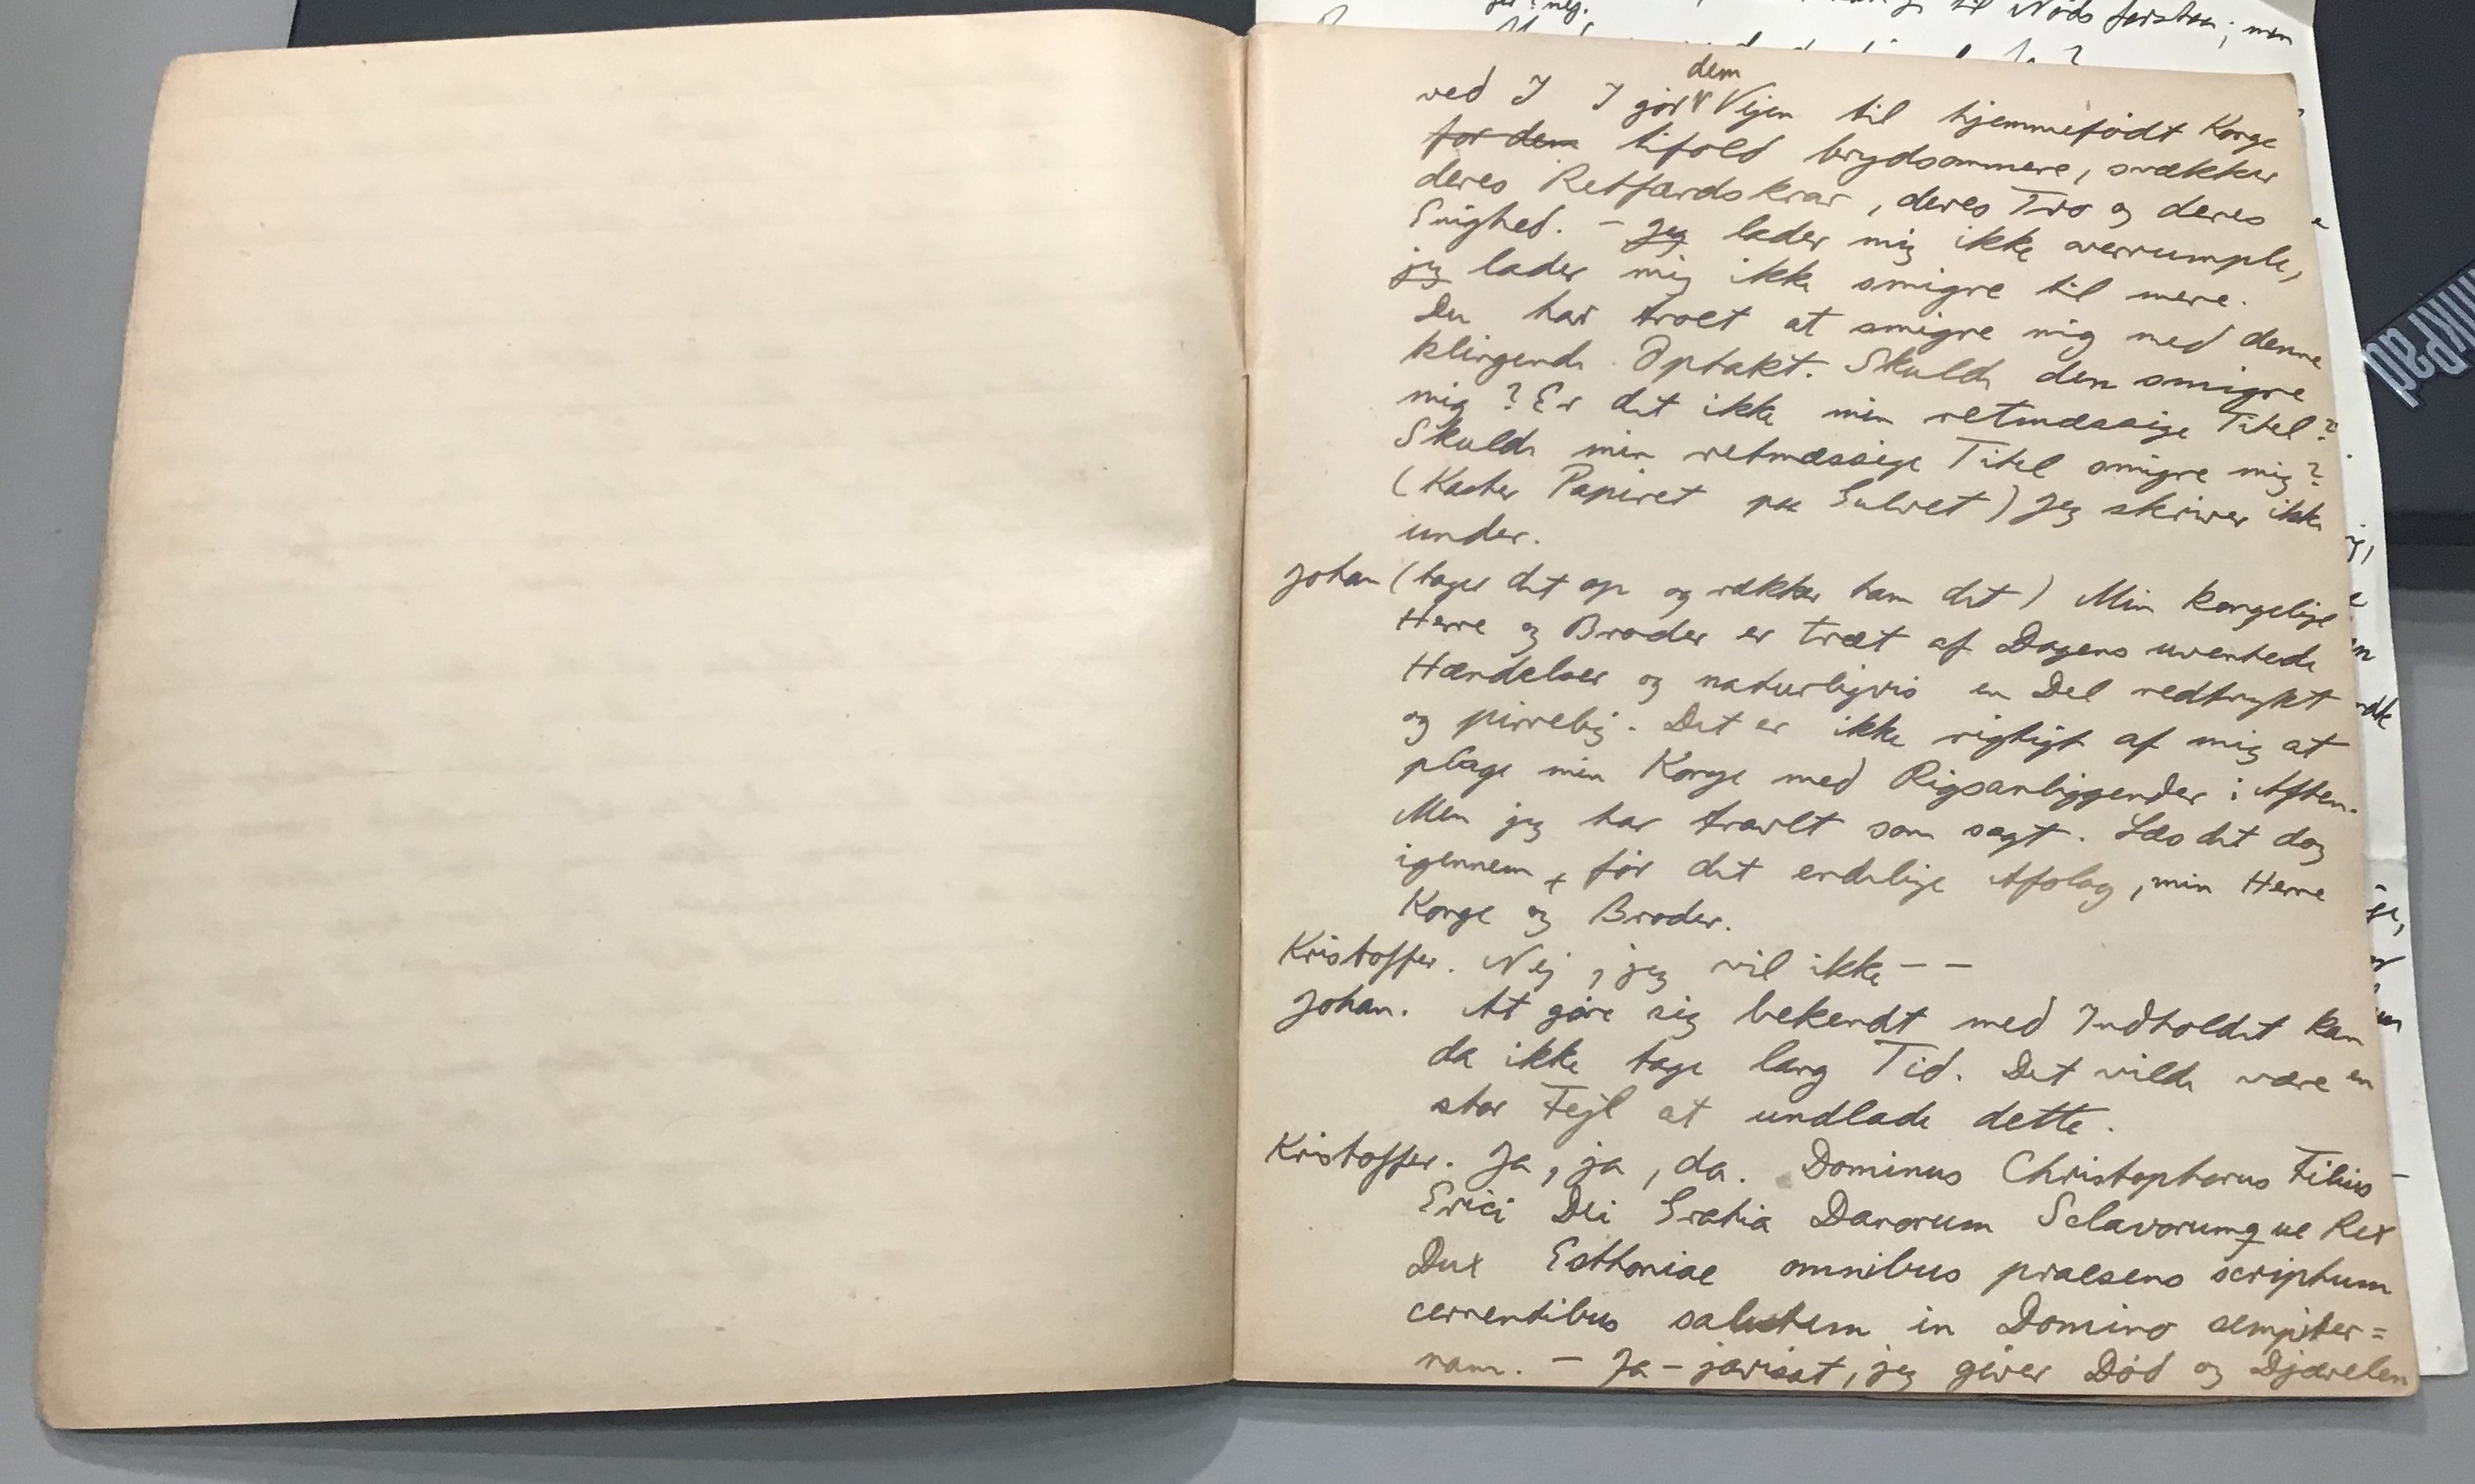 til Nöds forstaa; men
dem
ved I I gör Vejen til hjemmefödt Konge
for dem tifold brydsommere, svækker
deres Retfærdskrav, deres Tro og deres
Enighed. – Jeg lader mig ikke overrumple,
jeg lader mig ikke smigre til mere.
Du har troet at smigre mig med denne
klingende Optakt. Skulde den smigre
mig? Er det ikke min retmæssige Titel?
Skulde min retmæssige Titel smigre mig?
(Kaster Papiret paa Gulvet) Jeg skriver ikke
under.
Johan (tager det op og rækker ham det) Min kongelige
Herre og Broder er træt af Dagens uventede
Hændelser og naturligvis en Del nedtrykt
og pirrelig. Det er ikke rigtigt af mig at
plage min Konge med Rigsanliggender i Aften.
Men jeg har travlt som sagt. Læs det dog
igennem, för det endelige Afslag, min Herre
Konge og Broder.
Kristoffer. Nej, jeg vil ikke – –
Johan. At göre sig bekendt med Indholdet kan
da ikke tage lang Tid. Det vilde være en
stor Fejl at undlade dette.
Kristoffer. Ja, ja, da. Dominus Christophorus Filius
Erici Dei Gratia Danorum Sclavorumque Rex
Dux Esthoniae omnibus praesens scriptum
cernentibus salutem in Domino sempiter=
nam. – Ja – javisst, jeg giver Död og Djævelen